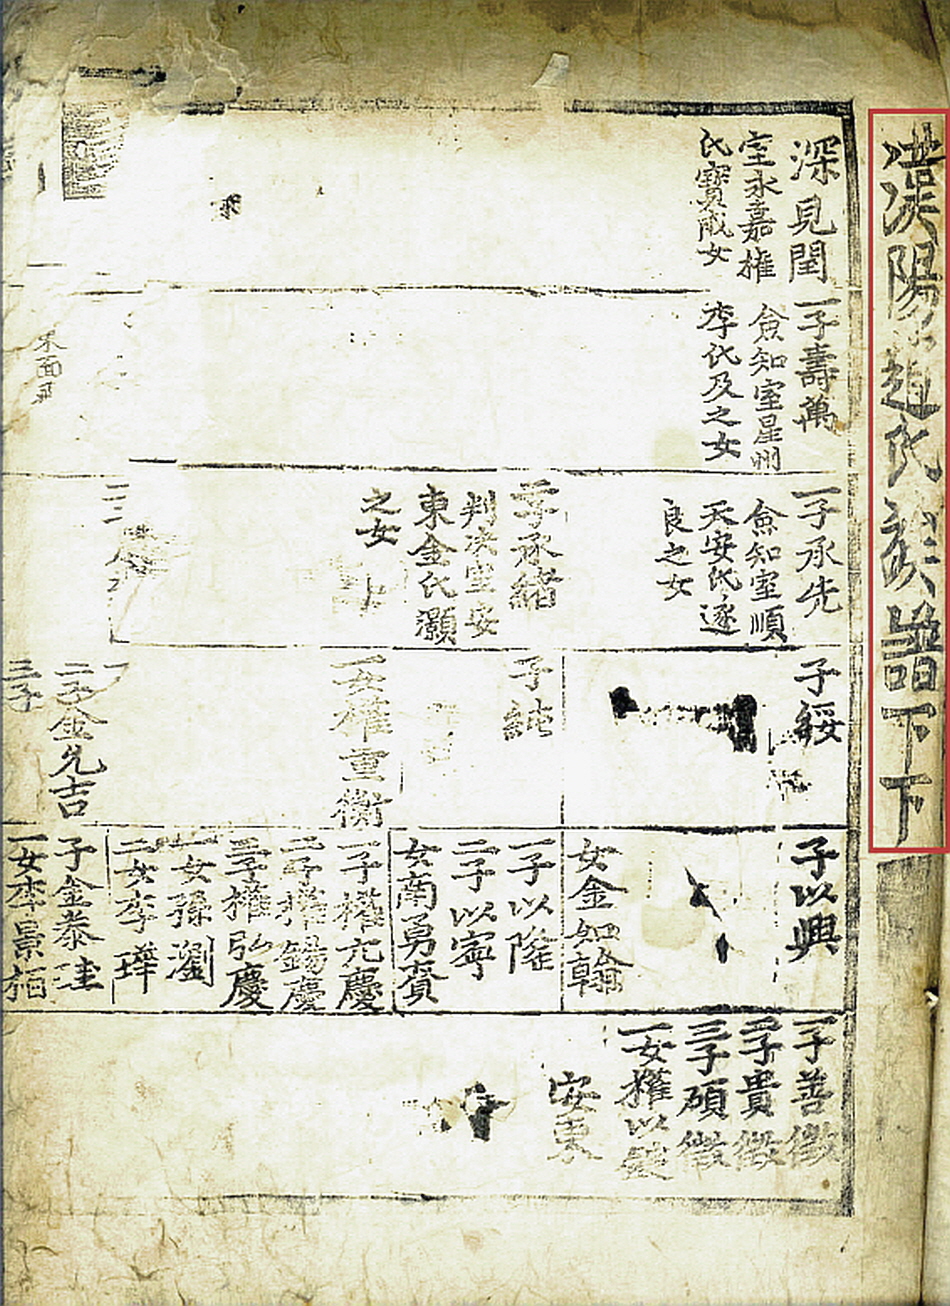 漢陽趙氏族譜下下
深見閏
室永嘉權
氏寶成女
一子壽萬
僉知室星州
李代及之女
一子承先
僉知室順
天安氏逐
良之女
二子承緒
判決室安
東金氏灝
之女
子綏
子純
一女權重衡
一
二子金允吉
三子
子以興
女金如翰
一子以隆
二子以寧
女南勇賚
一子權元慶
二子權錫慶
三子權弘慶
一女孫瀏
二女李瑋
子金泰珪
一女李景栢
一子善徵
二子貴徵
三子碩徵
一女權以
安東